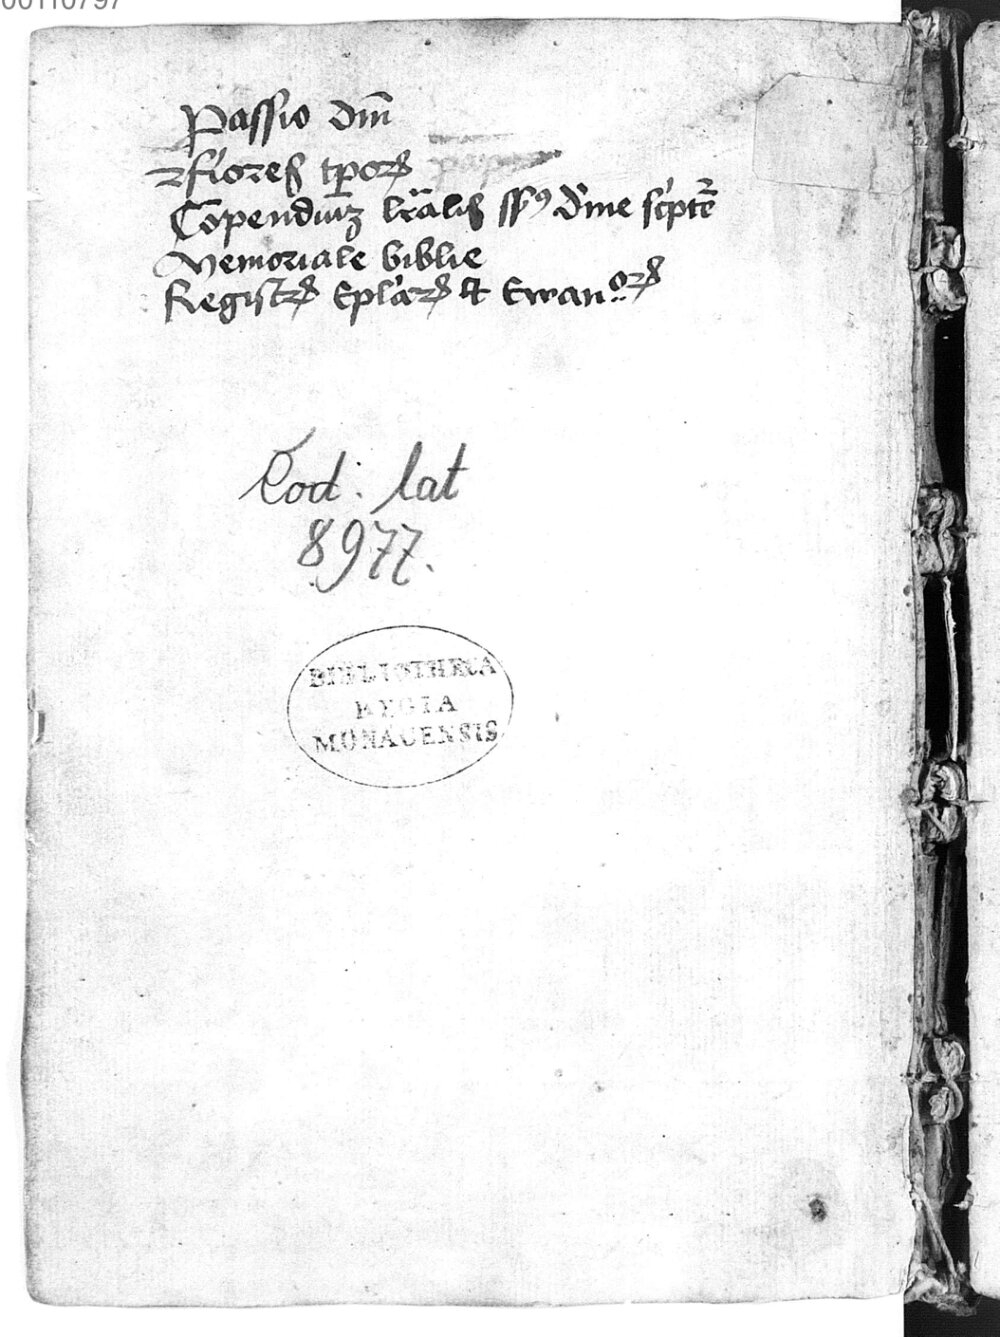 00110797
Passio dm̅
Flores tp̅oꝝ papa
Co̅pendiu̅ lr̅alis ssꝰ di̅ne sc̅pt̅e
Memoriale biblie
Registꝝ Epl̅aꝝ et Ewanoꝝ
Cod. lat
8977.
BIBLIOTHECA
REGIA
MONACENSIS